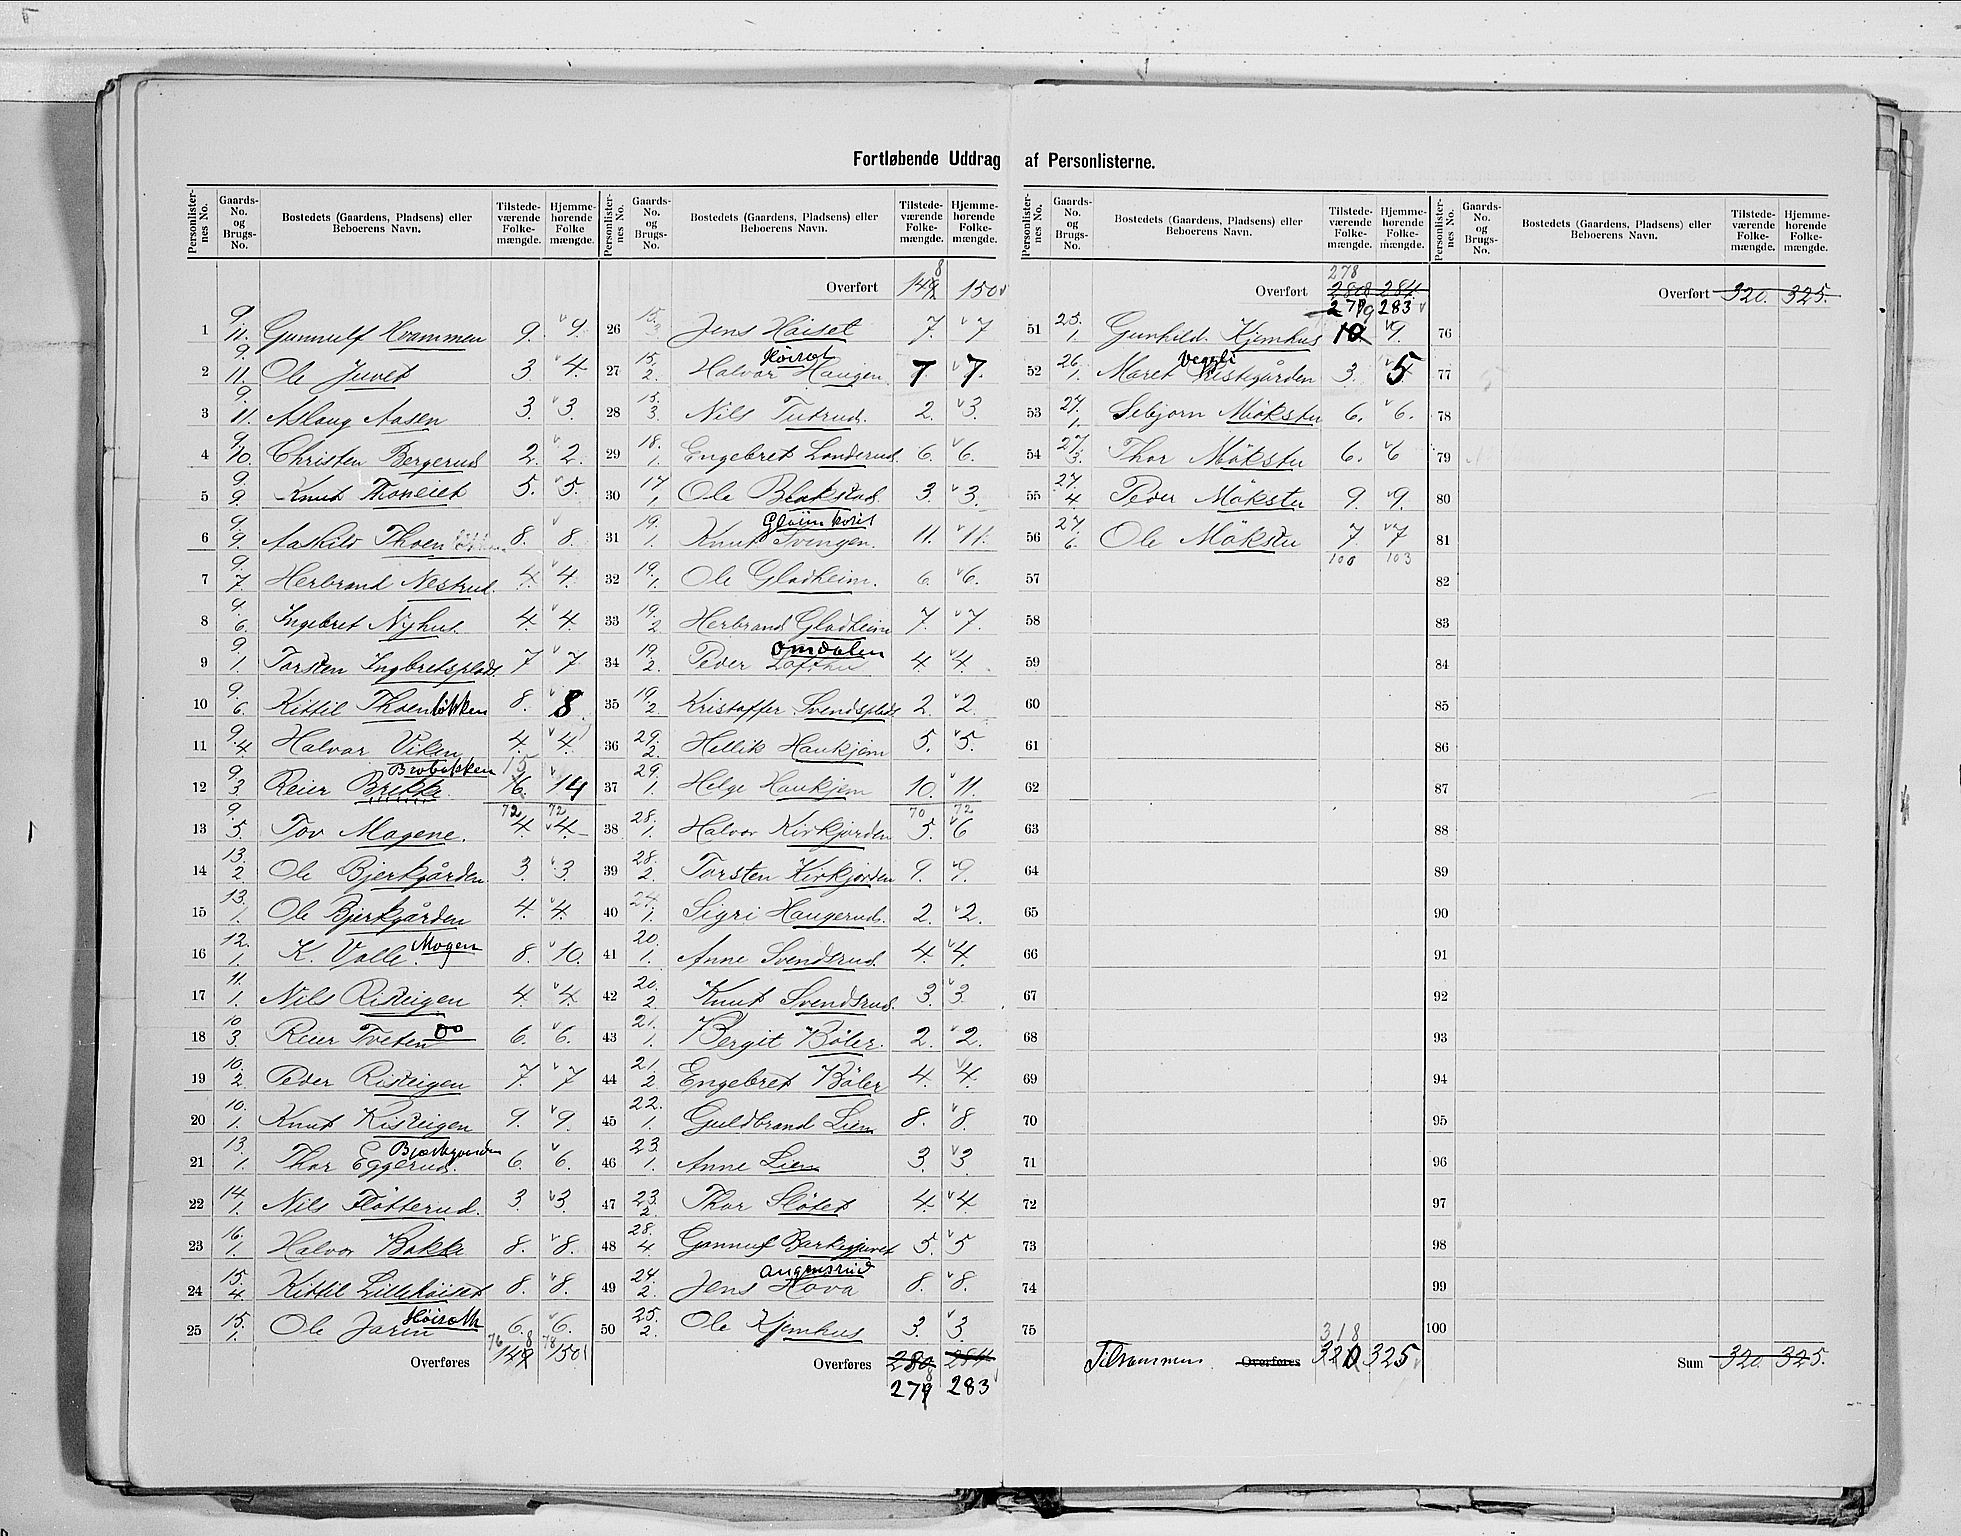 Fortløbende Uddrag af Personlisterne.
Personlister-nes No. Gaards-No. og Brugs-No. Bostedets (Gaardens, Pladsens) eller Beboerens Navn. Tilstede-værende Folke-mængde. Hjemme-hørende Folke mængde.
1 9. 11. Gunnulf Hvammen 9. 9.
2 9. 11. Ole Juvet 3. 4.
3 9. 11. Aslaug Aasen 3. 3.
4 9. 10. Christen Bergerud 2. 2.
5 9. 9. Knut Thoneiet 5. 5.
6 9. 9. Aaskild Thoen 8. 8.
7 9. 7. Herbrand Nestrud. 4. 4.
8 9. 6. Ingebret Nyhus. 4. 4.
9 9. 1. Torsten Ingbretsplads. 7 7
10 9. 6. Kittil Thoenløkken 8. 8
11 9. 4. Halvor Viken 4. 4.
12 9. 3 Reier Brekke. Brobakken 15 16. 14
72 72
13 9. 5. Tov Mogene. 4. 4.
14 13. 2 Ole Bjerkgården 3. 3.
15 13. 1. Ole Bjerkgården 4. 4.
16 12. 1. K. Valle. Mogen 8. 10.
17 11. 1. Nils Risteigen 4. 4.
18 10. 3. Reier Tveten Do 6. 6.
19 10. 2 Peder Risteigen 7. 7
20 10. 1. Knut Risteigen 9. 9.
21 13. 1. Thor Eggerud. Bjerkgaarden 6. 6.
22 14. 1. Nils Fløtterud. 3. 3.
23 16. 1. Halvor Bakke 8. 8.
24 15. 4. Kittil Lillehøiset 8. 8.
25 15. 1. Ole Jarin Høiseth 6. 6.
76 78
Overføres 149 8 150
Personlister-nes No. Gaards-No. og Brugs-No. Bostedets (Gaardens, Pladsens) eller Beboerens Navn. Tilstede-værende Folke-mængde. Hjemme-hørende Folke-mængde.
Overført 149 8 150
26 15. 3 Jens Høiset 7. 7
27 15. 2. Halvor Haugen. Høiset 7 7.
28 15. 3. Nils Tutrud. 2. 3.
29 18. 1. Engebret Londerud. 6. 6.
30 17. 1. Ole Blokstad 3. 3.
31 19. 1. Knut Svingen. 11. 11.
32 19. 1. Ole Gladheim. 6. 6.
33 19. 2. Herbrand Gladheim 7. 7.
34 19. 2. Peder Lofthus Omdalen 4. 4.
35 19. 2. Kristoffer Svendsplads 2. 2.
36 29. 2. Hellik Haukjem 5. 5.
37 29. 1. Helge Haukjem 10. 11.
70 72
38 28. 1. Halvor Kirkjorden 5. 6
39 28. 2. Torsten Kirkjorden 9. 9.
40 24. 1. Sigri Haugerud. 2. 2.
41 20. 1. Anne Svendsrud. 4. 4.
42 20. 2. Knut Svendsrud. 3. 3.
43 21. 1. Bergit Bøler. 2. 2.
44 21. 2. Engebret Bøler 4. 4.
45 22. 1. Guldbrand Lien 8. 8.
46 23. 1. Anne Lien 3. 3.
47 23. 2. Thor Sløtet 4. 4.
48 28. 4. Gunnuf Barkegjuvet 5. 5
49 24. 2. Jens Hova Augensrud 8. 8.
50 25. 2. Ole Kjemhus 3. 3.
Overføres 280 284
279 8 283
Personlister-nes No. Gaards-No. og Brugs-No. Bostedets (Gaardens, Pladsens) eller Beboerens Navn. Tilstede-værende Folke-mængde. Hjemme-hørende Folke-mængde.
278
Overført 280 284
279 283
51 25. 1. Gunhild Kjemhus 10 9.
52 26. 1. Maret Prestegården Veggli 3. 5
53 27. 1. Sebjorn Møkstu 6. 6.
54 27. 3. Thor Møkstu 6. 6
55 27. 4. Peder Møkstu 9. 9.
56 27. 6. Ole Møkstu 7 7
100 103
57
58
59
60
61
62
63
64
65
66
67
68
69
70
71
72
73
74
75
318
Tilsammen Overføres 320 325
Personlister-nes No. Gaards-No. og Brugs-No. Bostedets (Gaardens, Pladsens) eller Beboerens Navn. Tilstede-værende Folke-mængde. Hjemme-hørende Folke-mængde.
Overført 320. 325.
76
77
78
79
80
81
82
83
84
85
86
87
88
89
90
91
92
93
94
95
96
97
98
99
100
Sum 320. 325.